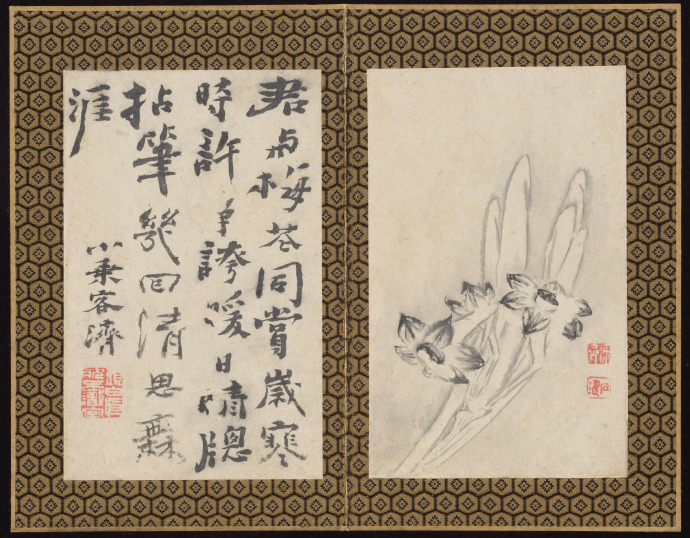 君与梅花同賞歲寒
時許誇暖日晴牕
拈筆幾回清思無
涯
小乘客濟